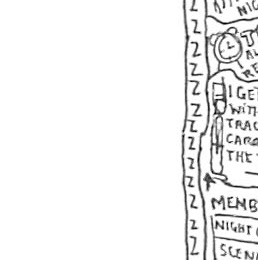 Z
Z
Z
Z
Z
Z
Z
Z
Z
Z
Z
NIG
T
AL
RE
I GET
WITH
TRAC
CARO
THE
MEMB
NIGHT
SCEN